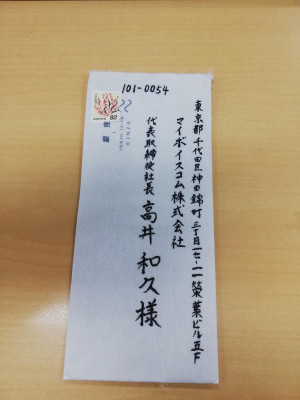 101-0054
東京都千代田区神田錦町三丁目一七-一一 榮葉ビル五F
マイボイスコム株式会社
代表取締役社長 高井 和久 様
82